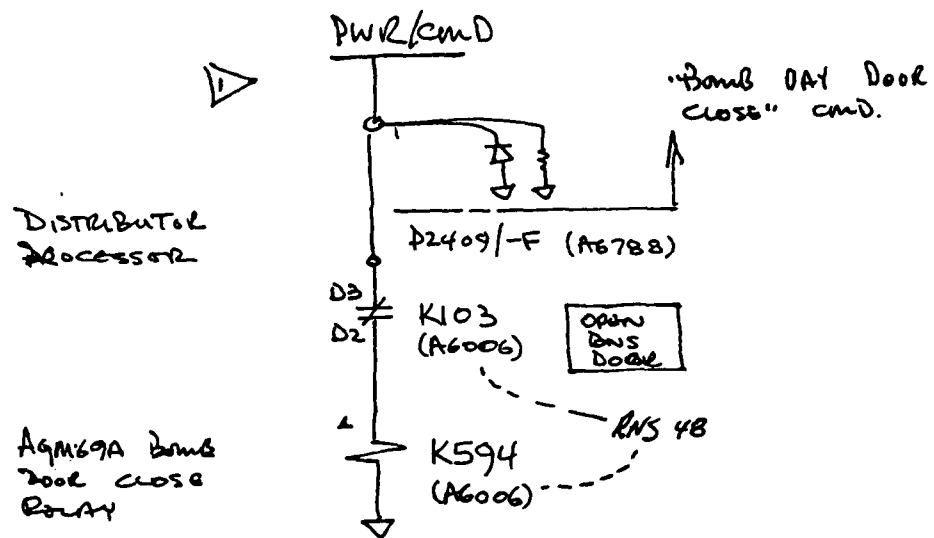 PWR/CMD
1
"BOMB BAY DOOR
CLOSE" CMD.
DISTRIBUTOR
PROCESSOR
D2409/-F (A6788)
D3
D2
K103
(A6006)
OPEN
BNS
DOOR
RNS 4B
AGM69A BOMB
DOOR CLOSE
RELAY
K594
(A6006)